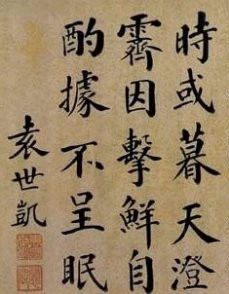 時或暮天澄
霽因擊鮮自
酌據不呈眠
袁世凱